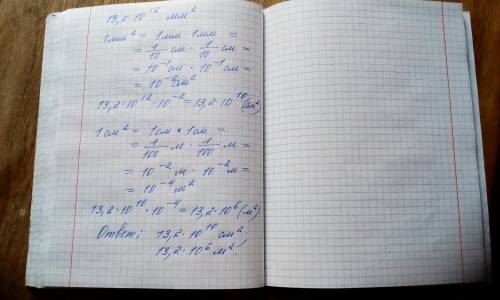 13,2 · 10¹² мм²
1мм² = 1мм · 1мм =
= 1/10 см · 1/10 см =
= 10⁻¹см · 10⁻¹см =
= 10⁻²см²
13,2·10¹²·10⁻²=13,2·10¹⁰(см²)
1см² = 1см · 1см =
= 1/100 м · 1/100 м =
= 10⁻² м · 10⁻² м =
= 10⁻⁴ м²
13,2·10¹⁰·10⁻⁴=13,2·10⁶(м²)
Ответ: 13,2·10¹⁰ см²
13,2·10⁶ м².